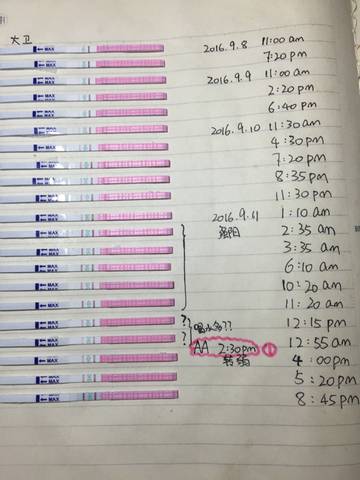 大卫
MAX 2016.9.8 11:00 am
MAX 7:20 pm
MAX 2016.9.9 11:00 am
MAX 2:20 pm
MAX 6:40 pm
MAX 2016.9.10 11:30 am
MAX 4:30 pm
MAX 7:20 pm
MAX 8:35 pm
MAX 11:30 pm
MAX 2016.9.11 1:10 am
MAX 强阳 2:35 am
MAX 3:35 am
MAX 6:10 am
MAX 10:20 am
MAX 11:20 am
MAX ? 12:15 pm
喝水多??
MAX ? 12:55 am
AA 2:30pm ①
MAX 转弱 4:00pm
MAX 5:20 pm
MAX 8:45 pm